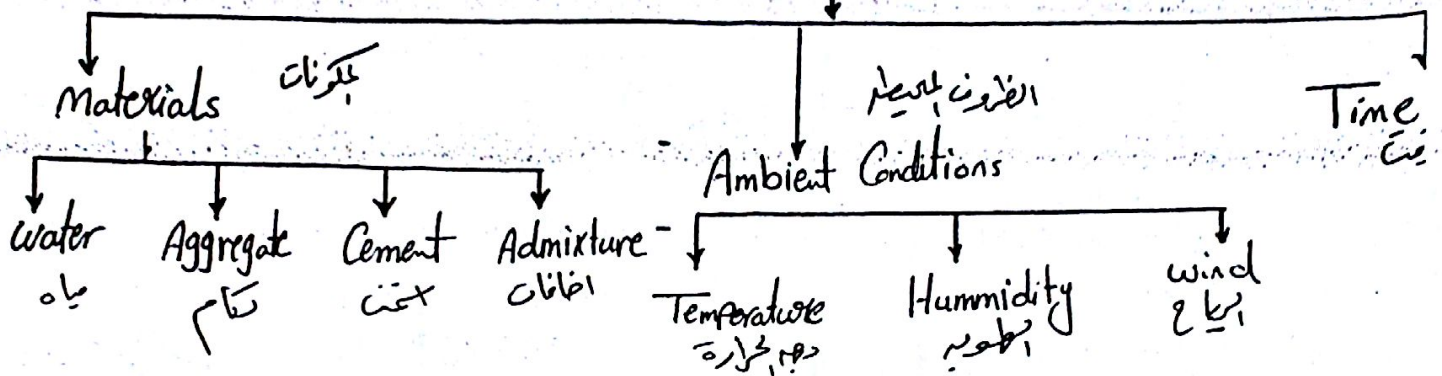 المكونات
Materials
الظروف المحيطة
Ambient Conditions
Time
Water
مياه
Aggregate
ركام
Cement
اسمنت
Admixture
اضافات
Temperature
درجه الحرارة
Hummidity
الرطوبه
wind
الرياح